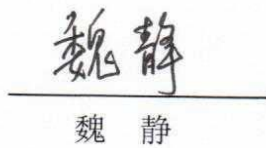 魏静
魏 静